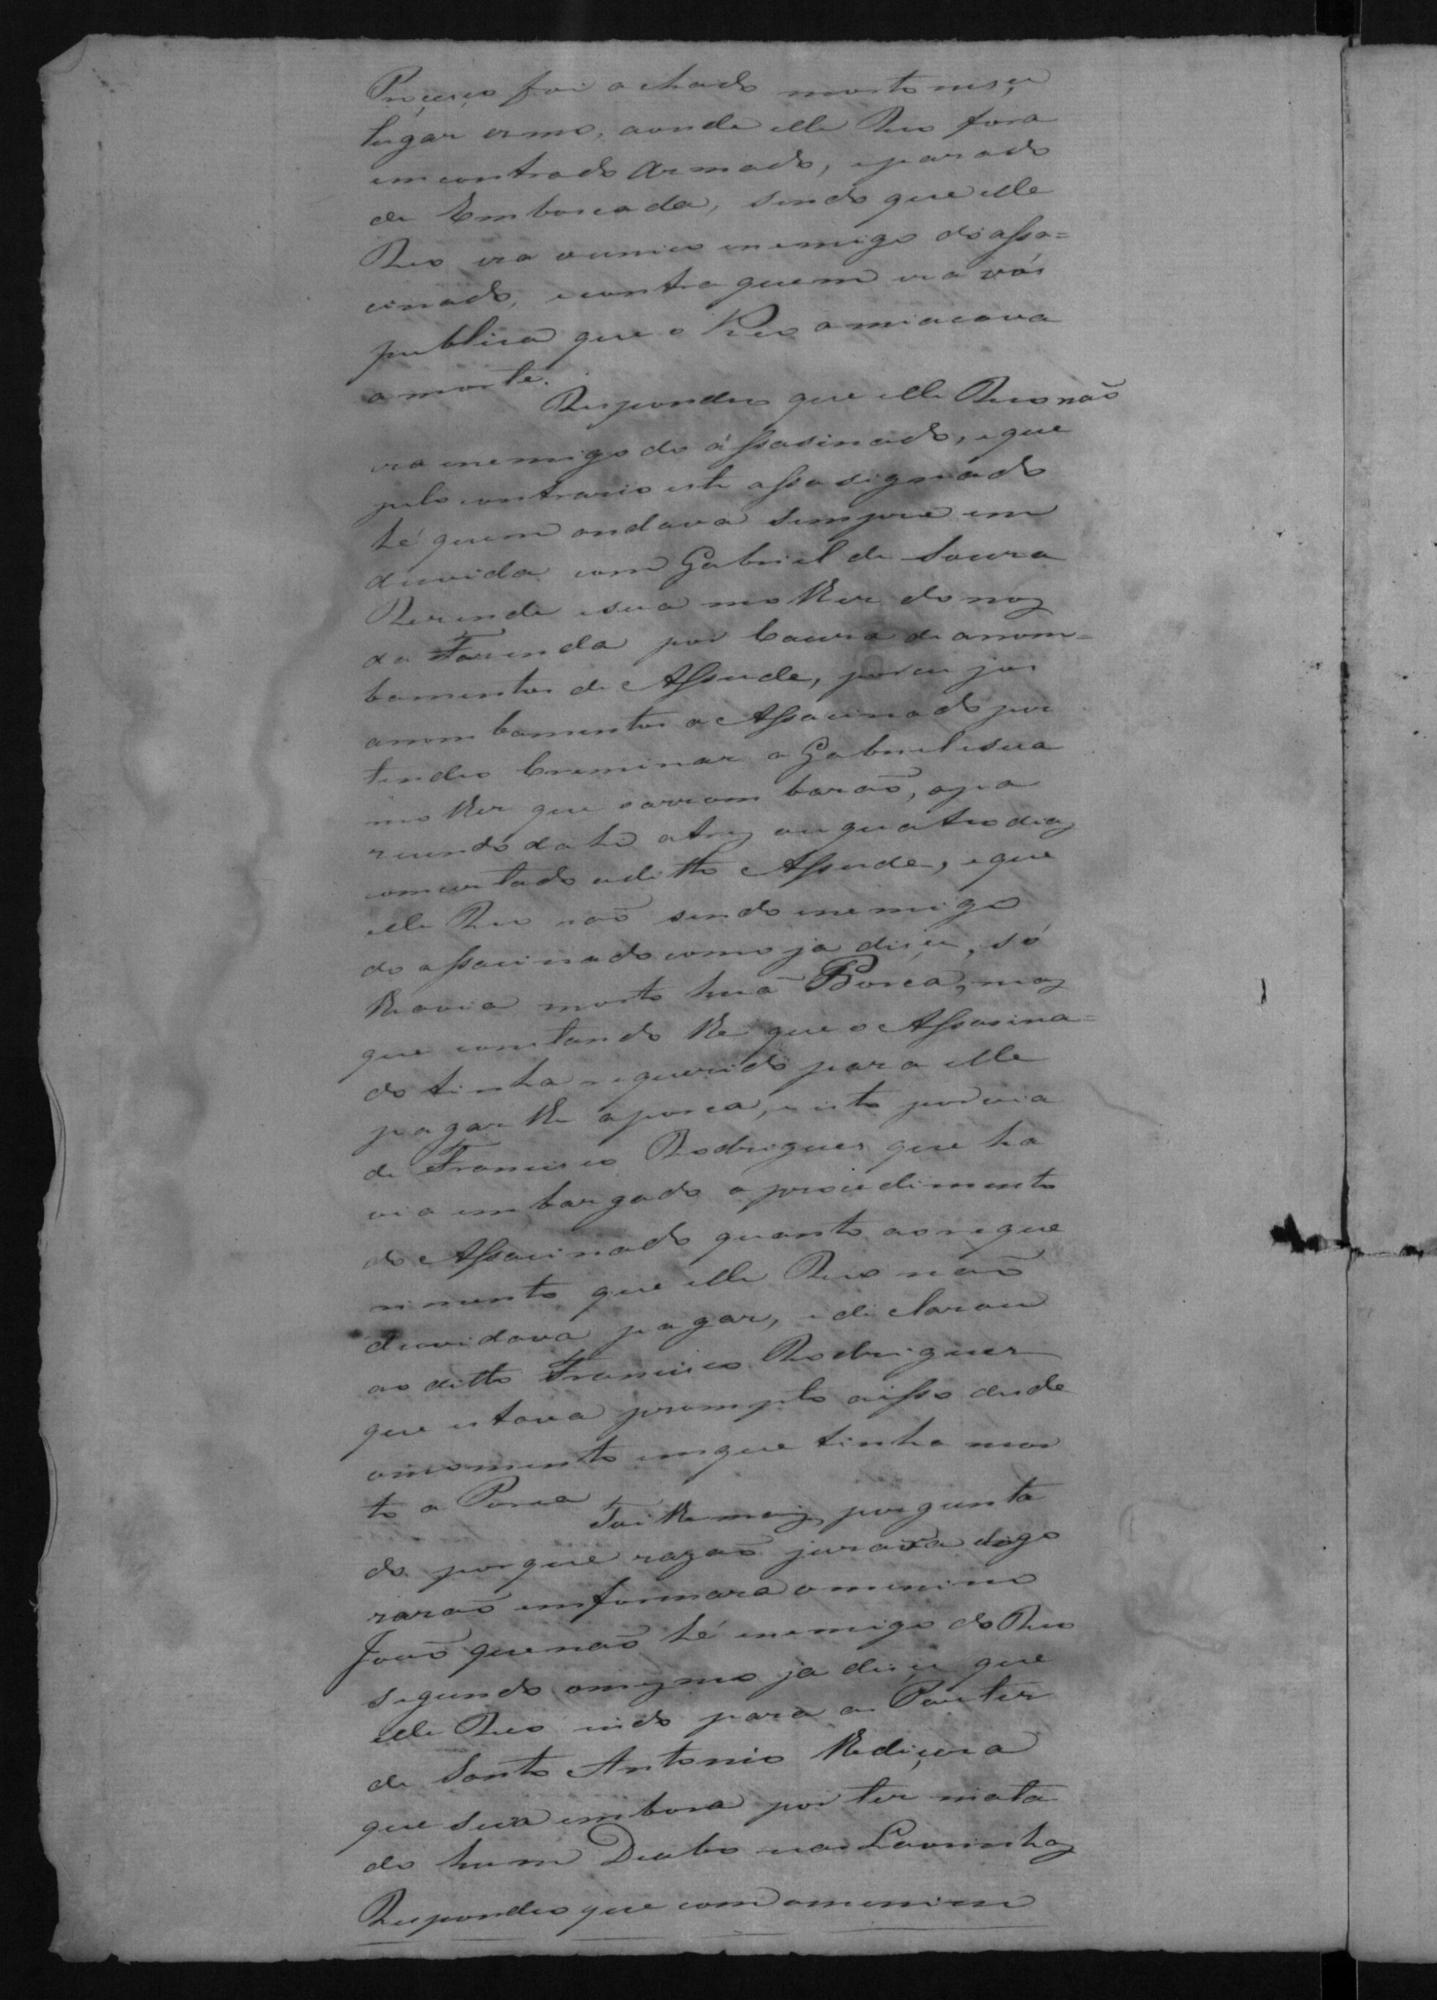 Proceço foi achado morto nesse
lugar ermo, aonde elle Reo fora
emcontrado armado, eparado
de Emboscada, sendo que elle
Reo era o unico enemigo do assa=
cinado, econtra quem era vós
publica que o Reo amiacava
a morte.
Respondeo que elle Reo não
era enemigo do assasinado, eque
pelo contrario este assasignado
hé quem andava sempre em
duvida com Gabriel de Souza
Rezende esua molher donnos
da Fazenda por Cauza de arrom=
bamentos de Assude, por cujos
arrombamentos o Assacinado per
tendeo Creminar a Gabriel esua
molher que oarrombarão, apa
recendo dahi a tres ou quatro dias
comcertado oditto Assude, eque
elle Reo não sendo enemigo
do assacinado como ja dice, só
havia morto huã Porca, mas
que constando lhe que o Assasina=
do tinha requerido para elle
pagar lhe aporca, eisto por via
de Francisco Rodrigues que ha
via embargado o procedimento
do Assacinado quanto aoreque
rimento que elle Reo não
duvidava pagar, edeclarou
ao ditto Francisco Rodrigues
que estava prompto aisso desde
omomento emque tinha mor
to a Porca
Foi lhe mais pergunta
do porque razão jurava digo
razão emformara omenino
João quenão hé enemigo do Reo
segundo omesmo ja dice que
elle Reo indo para as Partes
de Santo Antonio lhe diçera
que seia embora por ter mata
do hum Diabo nas Lavrinhas
Respondeo que com omenino